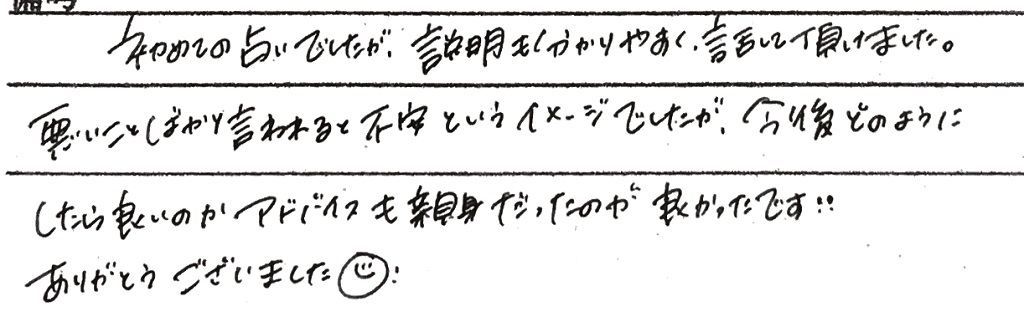 備考
初めての占いでしたが、説明も分かりやすく、話して頂けました。
悪いことばかり言われると不安というイメージでしたが、今後どのように
したら良いのかアドバイスも親身だったのが良かったです!!
ありがとうございました☺!